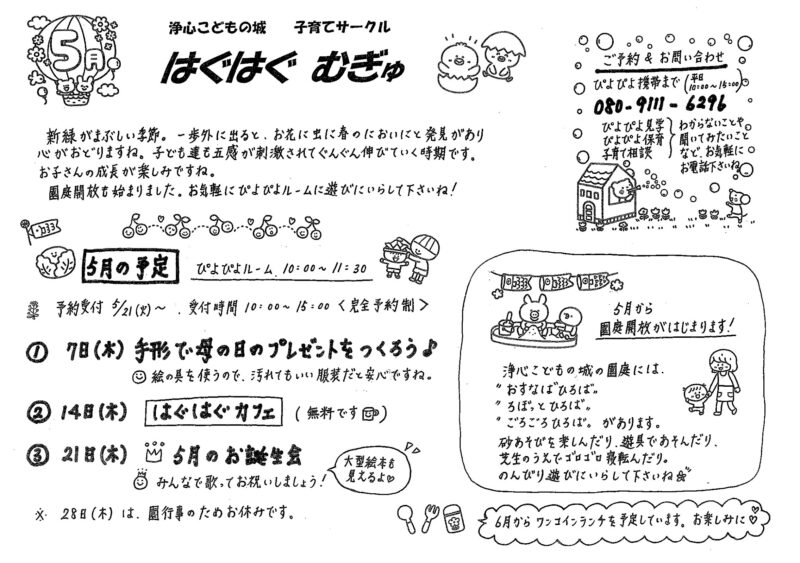 5月
浄心こどもの城 子育てサークル
はぐはぐ むぎゅ
新緑がまぶしい季節。一歩外に出ると、お花に虫に春のにおいにと発見があり
心がおどりますね。子ども達も五感が刺激されてぐんぐん伸びていく時期です。
お子さんの成長が楽しみですね。
園庭開放も始まりました。お気軽にぴよぴよルームに遊びにいらして下さいね！
ご予約 & お問い合わせ
ぴよぴよ携帯まで (平日 10:00〜15:00)
080-9111-6296
ぴよぴよ見学
ぴよぴよ保育
子育て相談
わからないことや
聞いてみたいこと
など、お気軽に
お電話下さいね
5月の予定
ぴよぴよルーム 10:00〜11:30
予約受付 5/21(火)〜 受付時間 10:00〜15:00 <完全予約制>
① 7日(木) 手形で母の日のプレゼントをつくろう♪
絵の具を使うので、汚れてもいい服装だと安心ですね。
② 14日(木) はぐはぐカフェ (無料です)
③ 21日(木) 5月のお誕生会
みんなで歌ってお祝いしましょう！
大型絵本も
見えるよ♡
※ 28日(木)は、園行事のためお休みです。
5月から
園庭開放がはじまります！
浄心こどもの城の園庭には、
〃おすなばひろば。
〃ろぼっとひろば。
〃ごろごろひろば。があります。
砂あそびを楽しんだり、遊具であそんだり、
芝生のうえでゴロゴロ寝転んだり。
のんびり遊びにいらして下さいね
6月から ワンコインランチを予定しています。お楽しみに♡